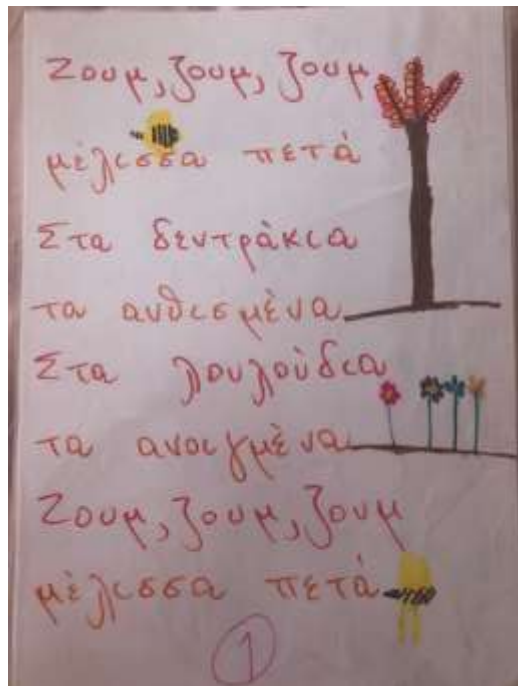 Ζουμ, ζουμ, ζουμ
μέλισσα πετά
Στα δεντράκια
τα ανθισμένα
Στα λουλούδια
τα ανοιγμένα
Ζουμ, ζουμ, ζουμ
μέλισσα πετά
1